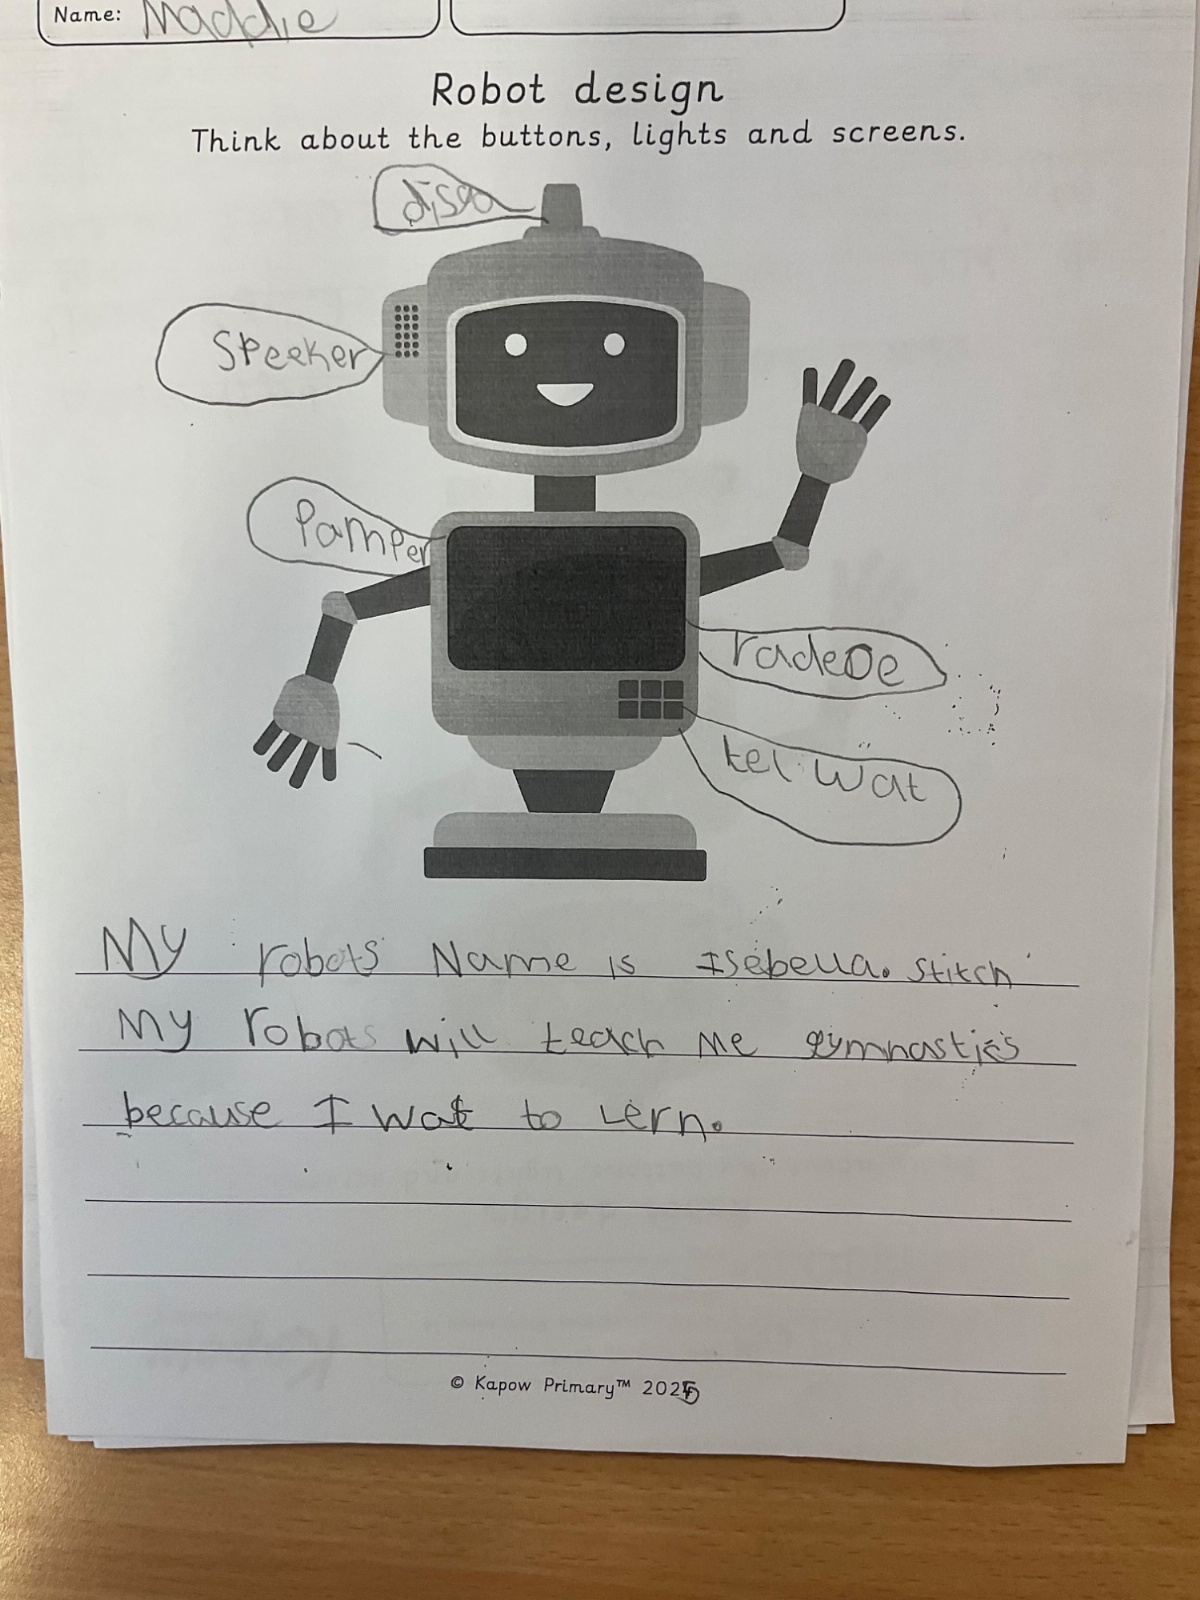 Name: Maddie
Robot design
Think about the buttons, lights and screens.
disco
Speeker
Pamper
radeoe
tel wat
My robots Name is Isebella. Stitch
My robots will teach me gymnastics
because I wat to Lern.
© Kapow Primary™ 2025